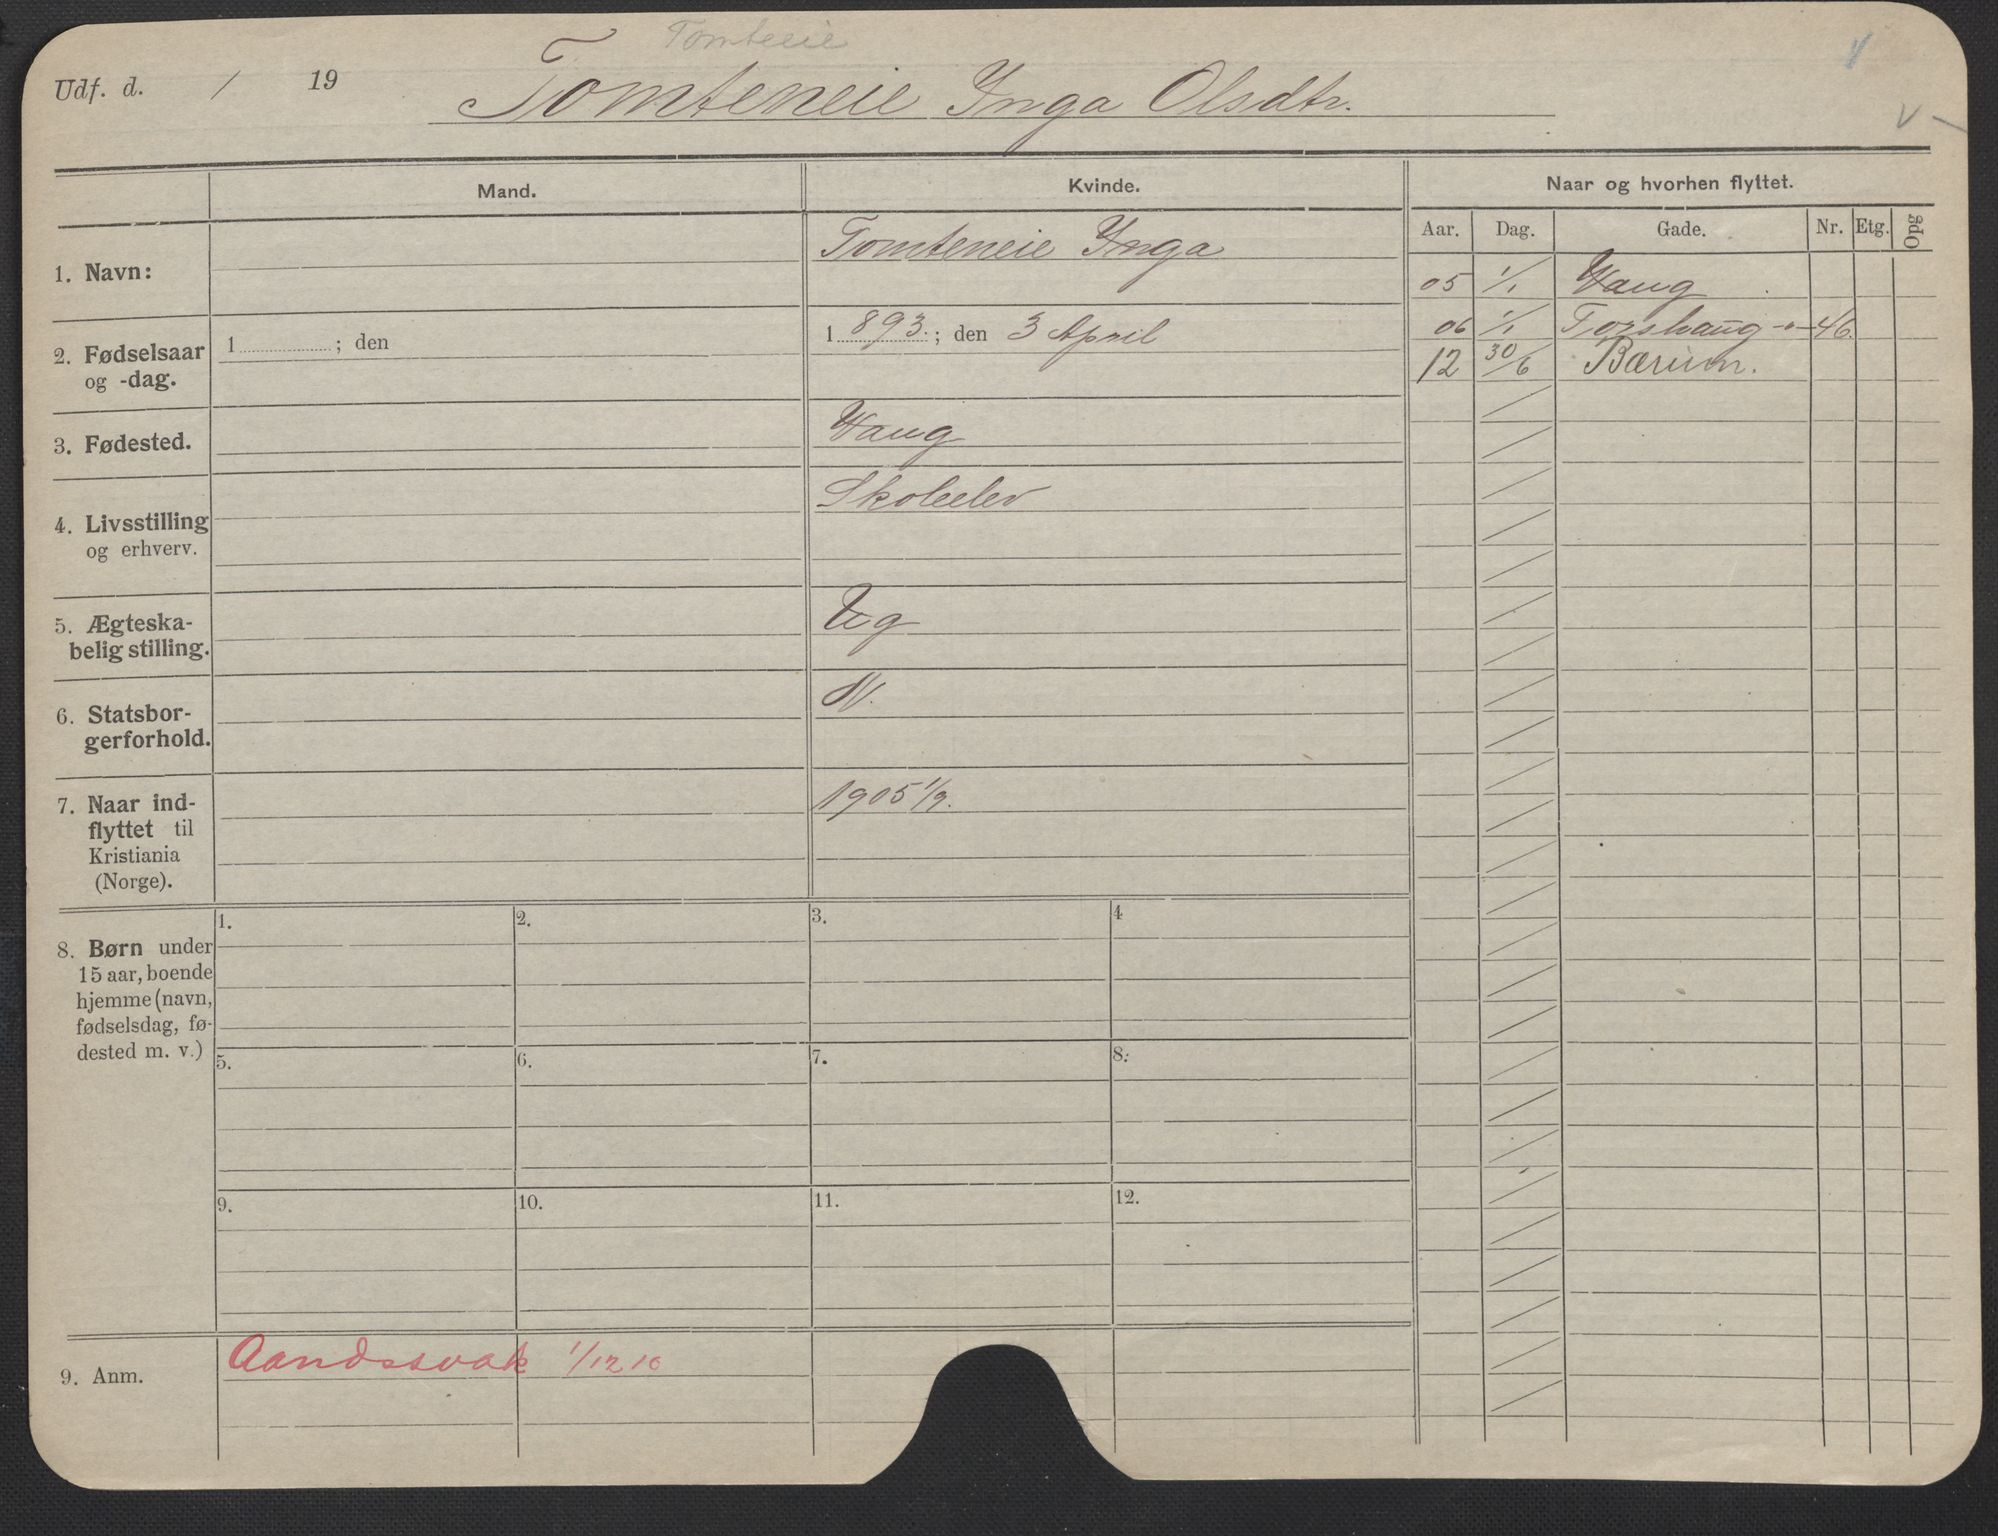 Tomteeie
Udf. d. / 19 Tomteneie Inga Olsdtr.
Mand. Kvinde. Naar og hvorhen flyttet.
Aar. Dag. Gade. Nr. Etg. Opg
1. Navn: Tomteneie Inga
05 1/1 Vang
06 1/1 Torshaug 46.
12 30/6 Bærum.
2. Fødselsaar 1 ; den 1 893. ; den 3 April
og -dag.
3. Fødested. Vang
4. Livsstilling Skoleelev
og erhverv.
5. Ægteska- Ug
belig stilling.
6. Statsbor- N.
gerforhold.
7. Naar ind- 1905 1/9.
flyttet til
Kristiania
(Norge).
8. Børn under 1. 2. 3. 4
15 aar, boende
hjemme (navn,
fødselsdag, fø-
dested m. v.) 5. 6. 7. 8:
9. 10. 11. 12.
9. Anm. Aandssvak 1/12 10